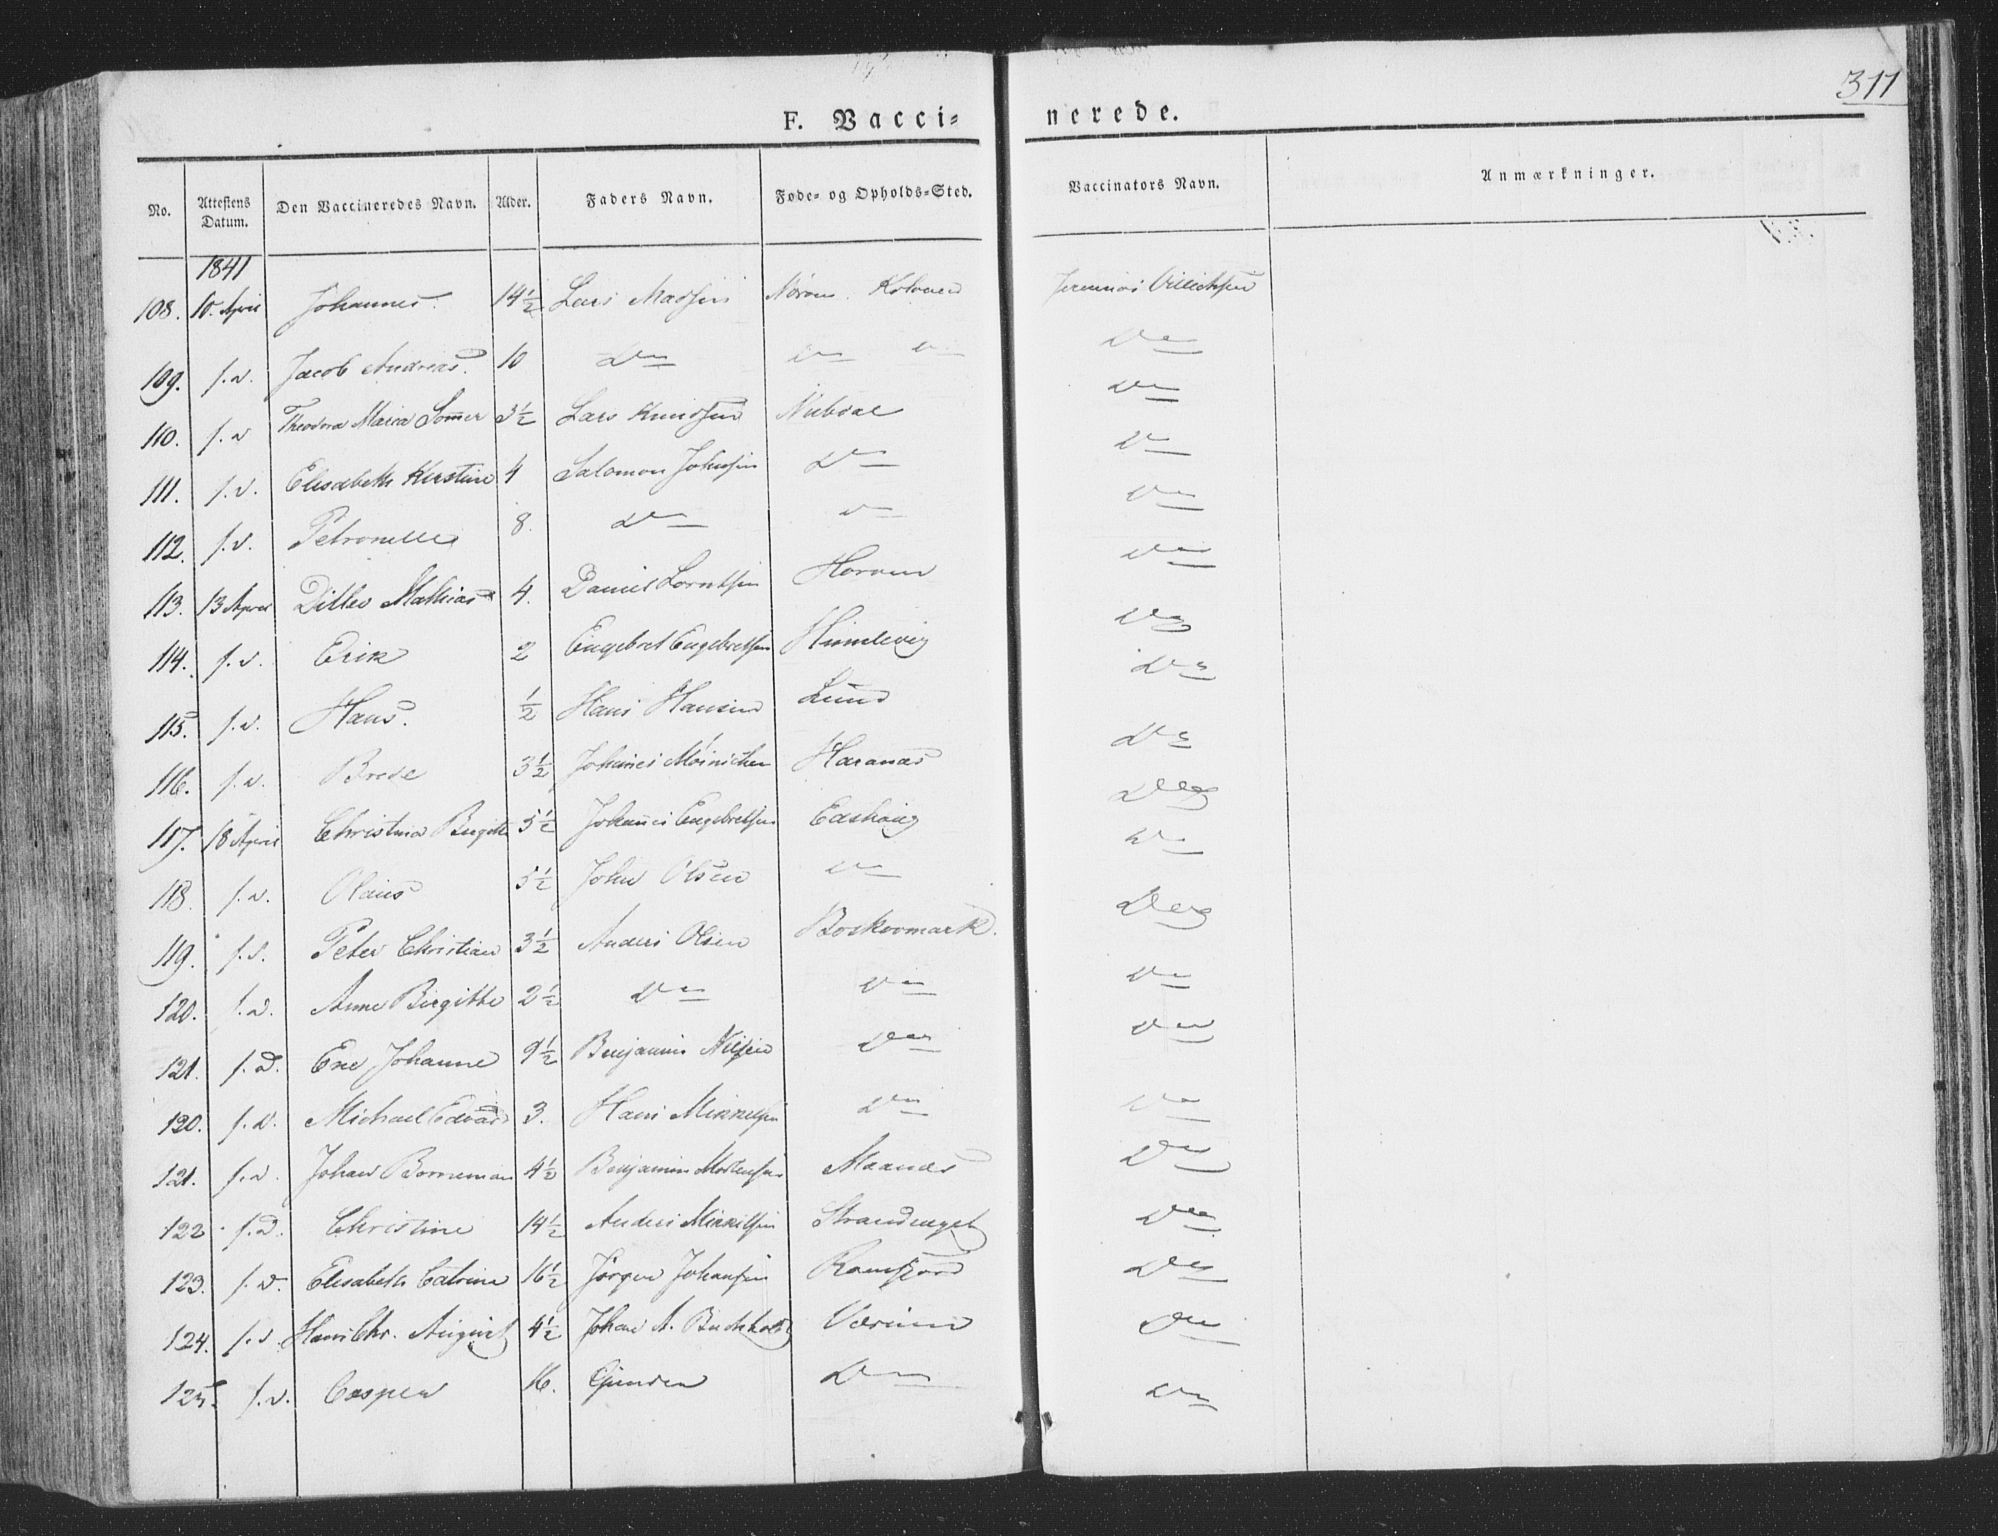 311
F. Vacci= nerede.
No. Attestens Datum. Den Vaccineredes Navn. Alder. Faders Navn. Føde- og Opholds-Sted. Vaccinators Navn. Anmærkninger.
1841
108. 10. April Johannes. 14½ Lars Madsen Kolveren
109. s. d. Jacob Andreas. 10 Do Do Do Do
110. s. d Theodora Maria Sommer 3½ Lars Knudsen Do
111. s. d. Elisabeth Kirstine 4 Salomon Johnsen Do Do
112. s. d. Petronelle 8. Do Do Do
113. 13 April Ditlev Mathias 4. Daniel Lorntsen Horven Do
114. s. d. Erik 2 Engebret Engebretsen Do
115. s. d. Hans. ½ Hans Hansen Lund Do
116. s. d. Brede 3½ Johannes Møinichen Haranæs Do
117. 18 April Christina Birgitte 5½ Johannes Engebretsen Do
118. s. d. Olaus 5½ John Olsen Do Do
119. s. d. Peter Christian 3½ Anders Olsen Do
120. s. d. Anne Birgitte 2½ Do Do Do
121. s. d. Ene Johanne 9½ Benjamin Nilsen Do Do
120. s. d. Michael Edvard 3. Hans Mikkelsen Do Do
121. s. d. Johan Borneman 4½ Benjamin Mortensen Maanæs Do
122. s. d. Christine 14½ Anders Mikkelsen Strandenget Do
123. s. d. Elisabeth Catrine 16½ Jørgen Johansen Ramfjord Do
124. s. d. Hans Chr. August 4½ Johan A. Buchholdt Værum Do
125. s. d. Casper 16. Do Do